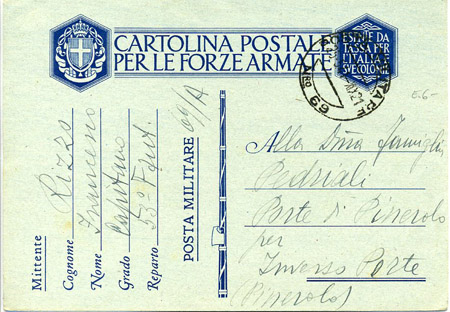 CARTOLINA POSTALE
PER LE FORZE ARMATE
ESENTE DA
TASSA PER
L'ITALIA
E SUE COLONIE
69
E.6-
Mittente
Cognome Rizzo
Nome Francesco
Grado Capitano
Reparto 53° Fant.
POSTA MILITARE 69/A
Alla Famiglia
Pedriali
Ponte di Pinerolo
per
Inverso Porte
(Pinerolo)